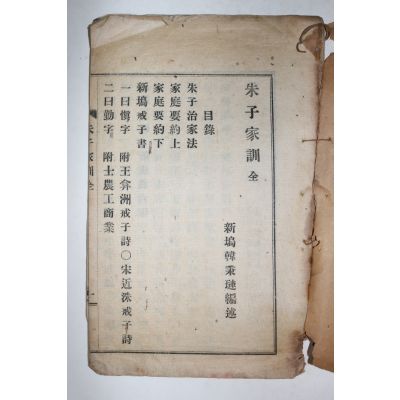 朱子家訓 全
新塢韓秉璉編述
目錄
朱子治家法
家庭要約上
家庭要約下
新塢戒子書
一曰惰字 附王弇洲戒子詩〇宋近洙戒子詩
二曰勤字 附士農工商業
朱子家訓全
一